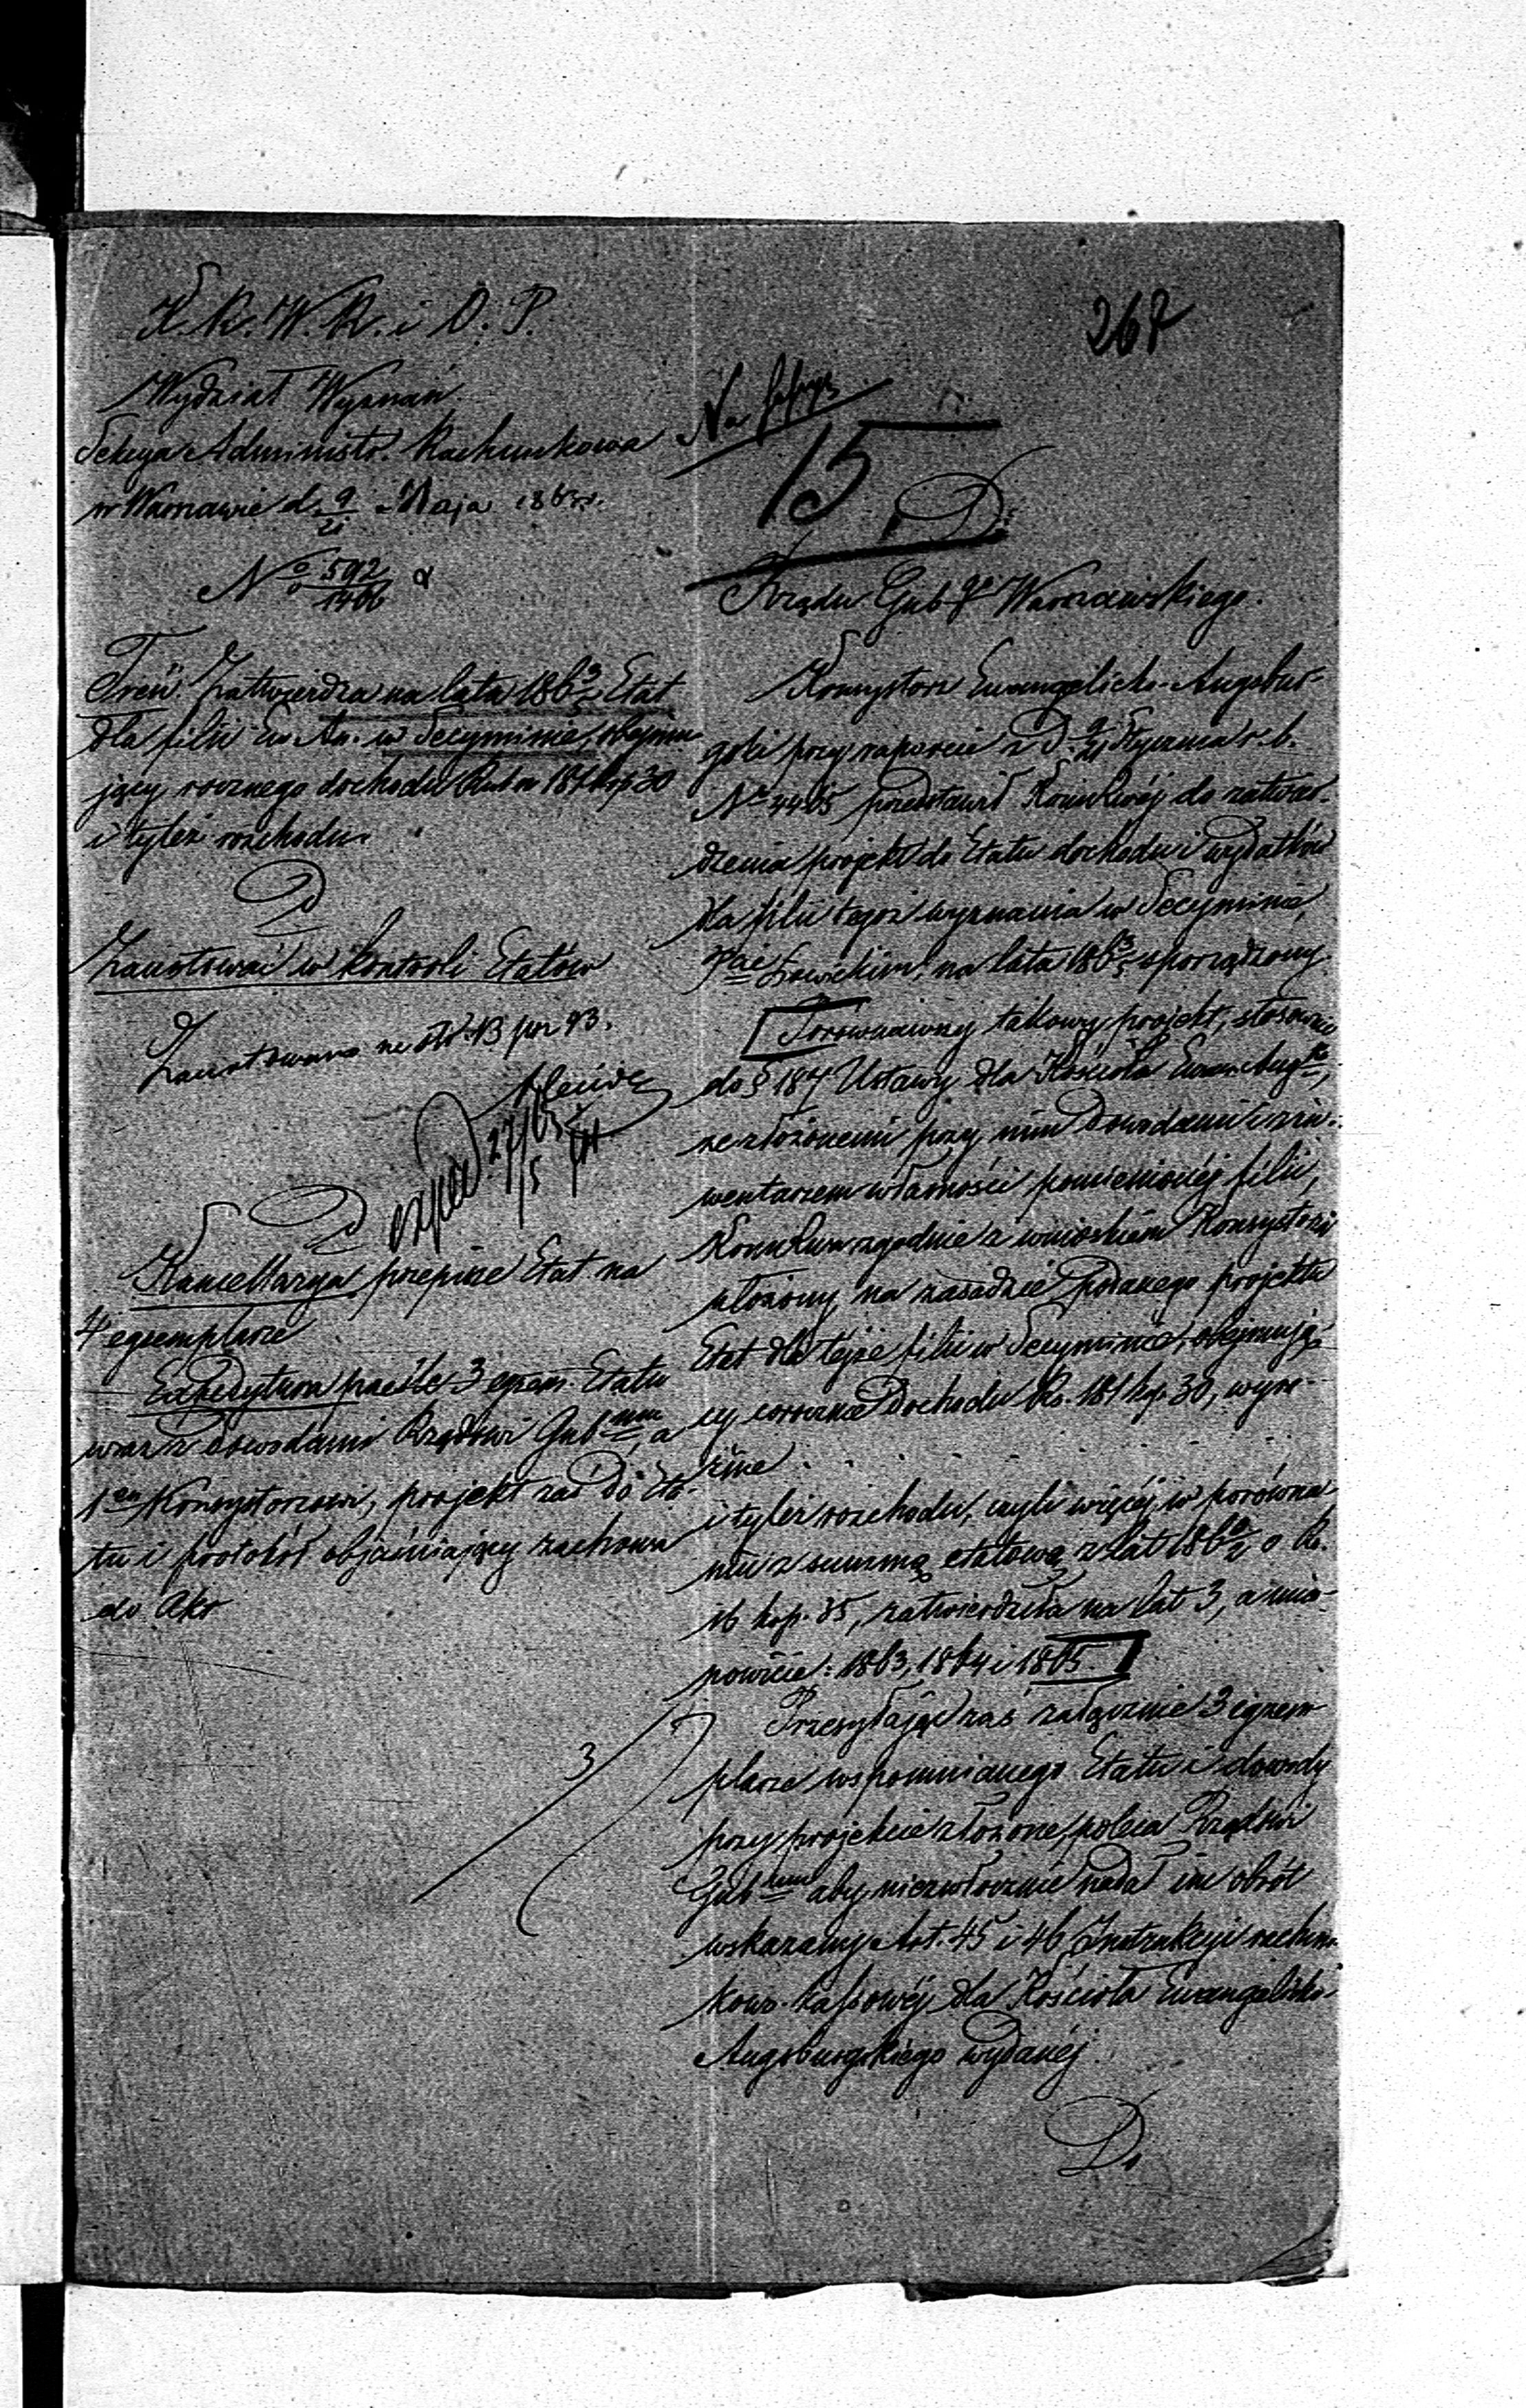 267
K. R. W. R. i O. P.
Wydział Wyznań
Sekcya Administr. Rachunkowa
w Warszawie d. 9/21 Maja 1863 r.
No 592/1406
Treść. Zatwierdza na lata 186 3/5 Etat
dla filii Ew. Au. w Secyminie, obejmu-
jący rocznego dochodu Rubsr 181 kop 30
i tyleż rozchodu.
Zanotować w kontroli Etatów
Zanotowano na str. 13 poz 93.
exped. 27/5 63
Kancellarya przepisze Etat na
4 egzemplarze
Expedytura prześle 3 egzem. Etatu
wraz z dowodami Rządowi Gubmu, a
1en Konsystorzowi, projekt zaś do Eta-
tu i protokół objaśniający zachowa
do Akt
3
Na
15
Do
Rządu Gubgo Warszawskiego.
Konsystorz Ewangelicko-Augsbur-
gski przy raporcie z d. 9/21 Stycznia r. b.
No 4465 przedstawił Kom. Rząd.éj do zatwier-
dzenia projekt do Etatu dochodu i wydatków
dla filii tegoż wyznania w Secyminie,
Pcie Łowickim, na lata 186 3/5 sporządzony.
Porównawszy takowy projekt, stosownie
do § 187 Ustawy dla Kościoła Ewan. Augo,
ze złożonemi przy nim dowodami i in-
wentarzem własności pomienionéj filii,
zgodnie z wnioskiem Konsystorza
ułożony, na zasadzie podanego projektu
Etat dla tejże filii w Secyminie, obejmują-
cy corocznie dochodu Rs. 181 kop. 30, wyra-
źnie . . . . .
i tyleż rozchodu, czyli więcéj w porówna-
niu z summą etatową z lat 186 0/2 o Rs.
16 kop. 35, zatwierdziła na lat 3, a mia-
nowicie: 1863, 1864 i 1865
Przesyłając zaś załącznie 3 egzem-
plarze wspomnianego Etatu i dowody
przy projekcie złożone, poleca Rządowi
Gubmu aby niezwłocznie nadał im obrót
wskazany Art. 45 i 46 Instrukcyi rachun-
kowo-kassowéj dla Kościoła Ewangelicko-
Augsburgskiego wydanéj.
Do